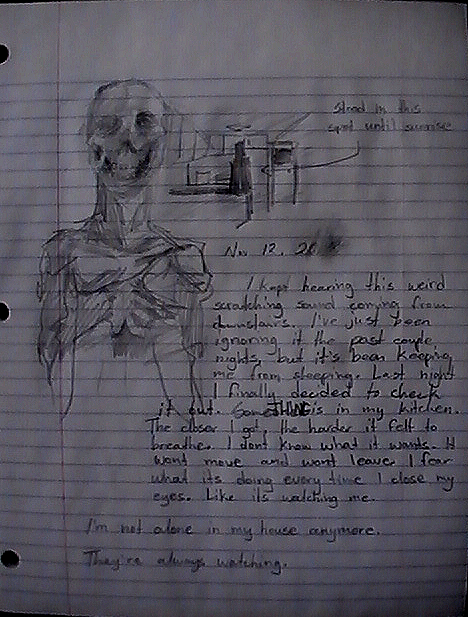 stood in this
spot until sunrise
Nov 12, 20
I kept hearing this weird
scratching sound coming from
downstairs. I've just been
ignoring it the past couple
nights, but it's been keeping
me from sleeping. Last night
I finally decided to check
it out. SomeTHING is in my kitchen.
The closer I got, the harder it felt to
breathe. I dont know what it wants. It
wont move and wont leave. I fear
what its doing every time I close my
eyes. Like its watching me.
I'm not alone in my house anymore.
They're always watching.